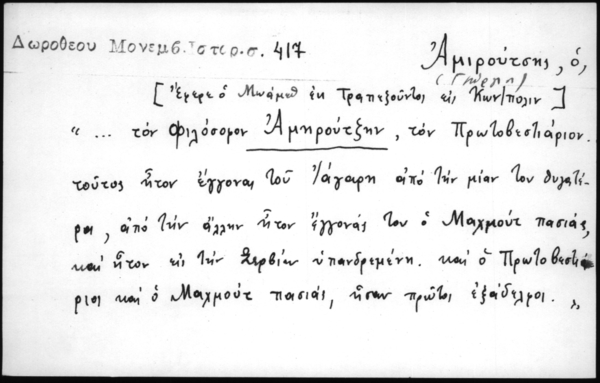 Δωροθεου Μονεμβ. Ιστορ. σ. 417
Ἀμιρούτσης, ὁ,
(Γιώργης)
[Ἔφερε ὁ Μωάμεθ ἐκ Τραπεζοῦντος εἰς Κων/πολιν]
“ ... τὸν φιλόσοφον Ἀμηρούτζην, τὸν Πρωτοβεστιάριον.
τοῦτος ἦτον ἔγγονας τοῦ Ἰάγαρη ἀπὸ τὴν μίαν του θυγατέ-
ρα, ἀπὸ τὴν ἄλλην ἦτον ἔγγονάς του ὁ Μαχμοὺτ πασιᾶς,
καὶ ἦτον εἰς τὴν Σερβίαν ὑπανδρεμένη. καὶ ὁ Πρωτοβεστιά-
ριος καὶ ὁ Μαχμοὺτ πασιᾶς, ἦσαν πρῶτοι ἐξάδελφοι. ”